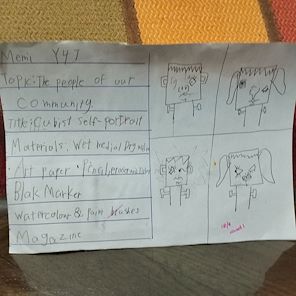 Memi Y4J
Topic: The people of our
Community
Title: Cubist self-portrait
Materials. Wet medical
Art paper. Pencil,
Blak Marker
Watercolour & pain brushes
Magazine